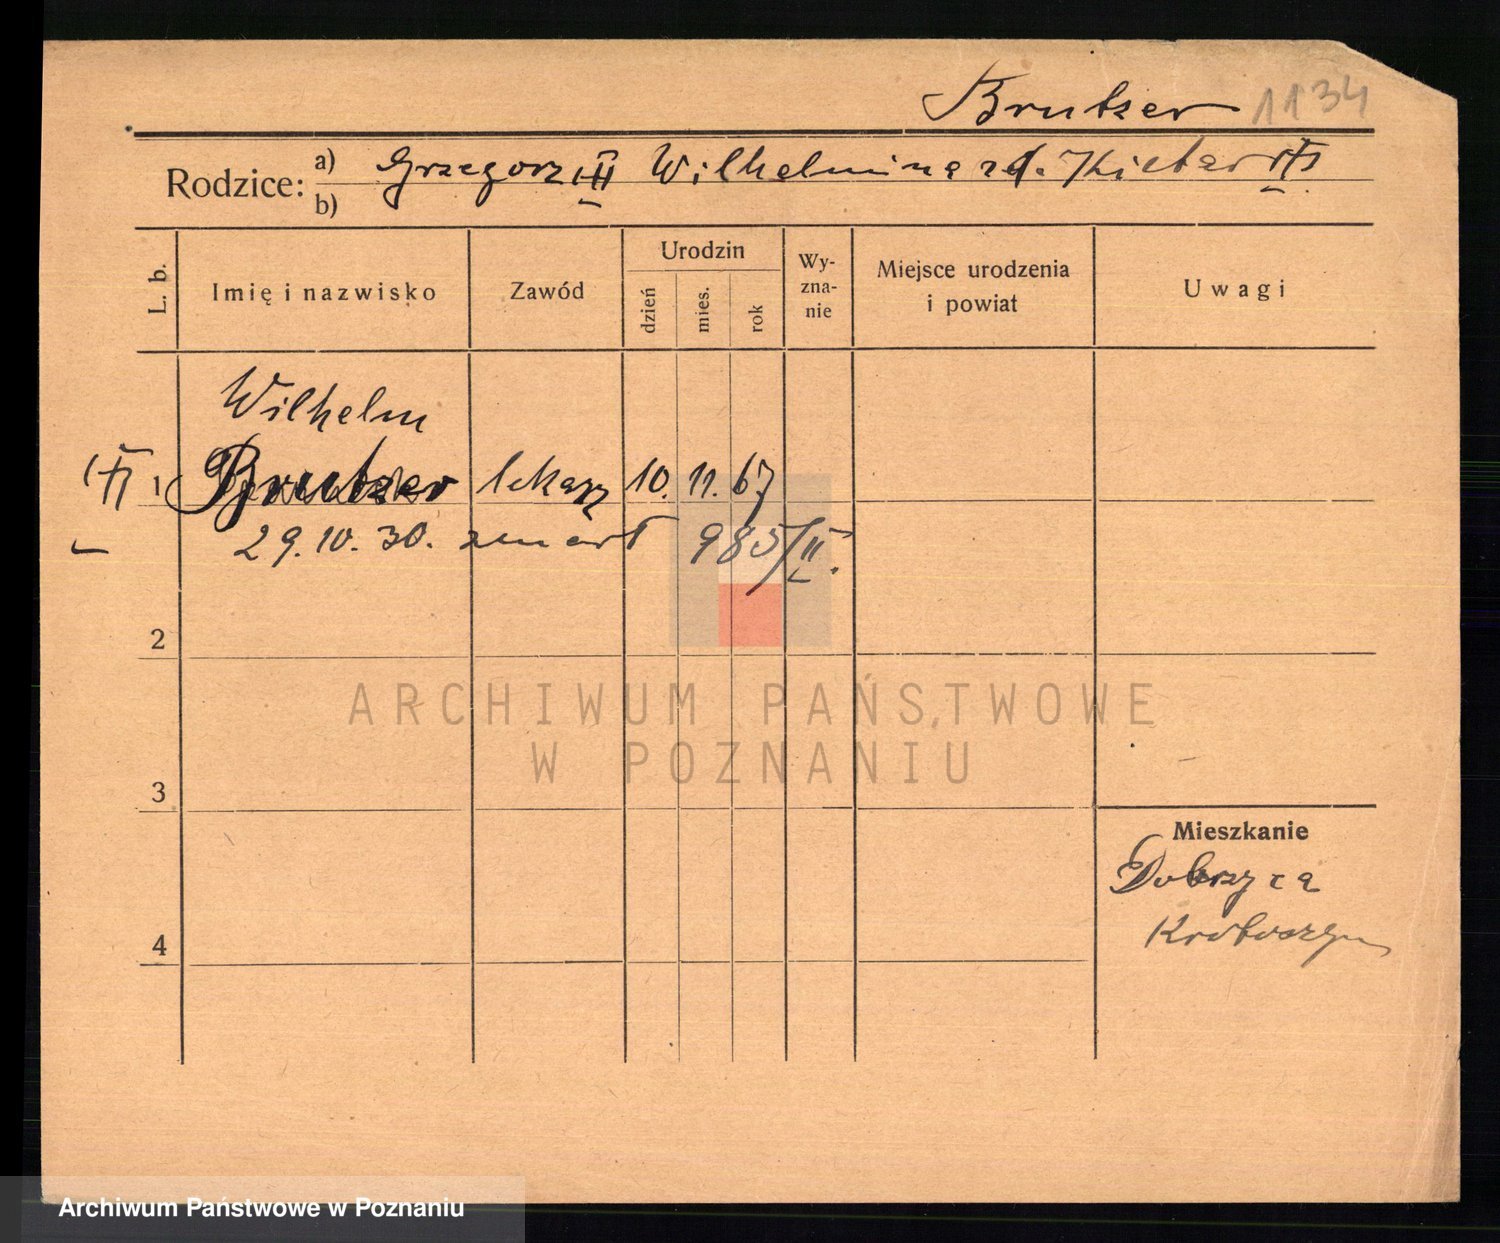 Brutzer 1134
Rodzice: a) Grzegorz Wilhelmina
b)
L. b. Imię i nazwisko Zawód Urodzin dzień mies. rok Wy-zna-nie Miejsce urodzenia i powiat Uwagi
Wilhelm
1 Brutzer lekarz 10. 11. 67
29. 10. 30. zmarł 985/II.
2
ARCHIWUM PAŃSTWOWE
W POZNANIU
3
Mieszkanie
Dobrzyca
Krotoszyn
4
Archiwum Państwowe w Poznaniu